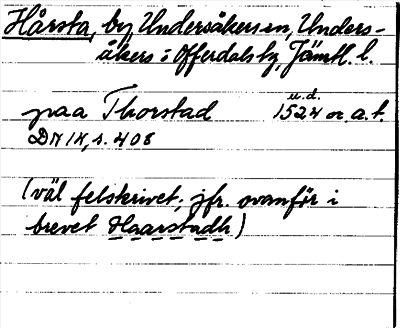 Hårsta, by, Undersåkers sn, Unders-
åkers o Offerdals tg, Jämtl. l.
u.d.
paa Thorstad 1524 or. a.t.
DN IX, s. 408
(väl felskrivet; jfr. ovanför i
brevet Haarstadh)